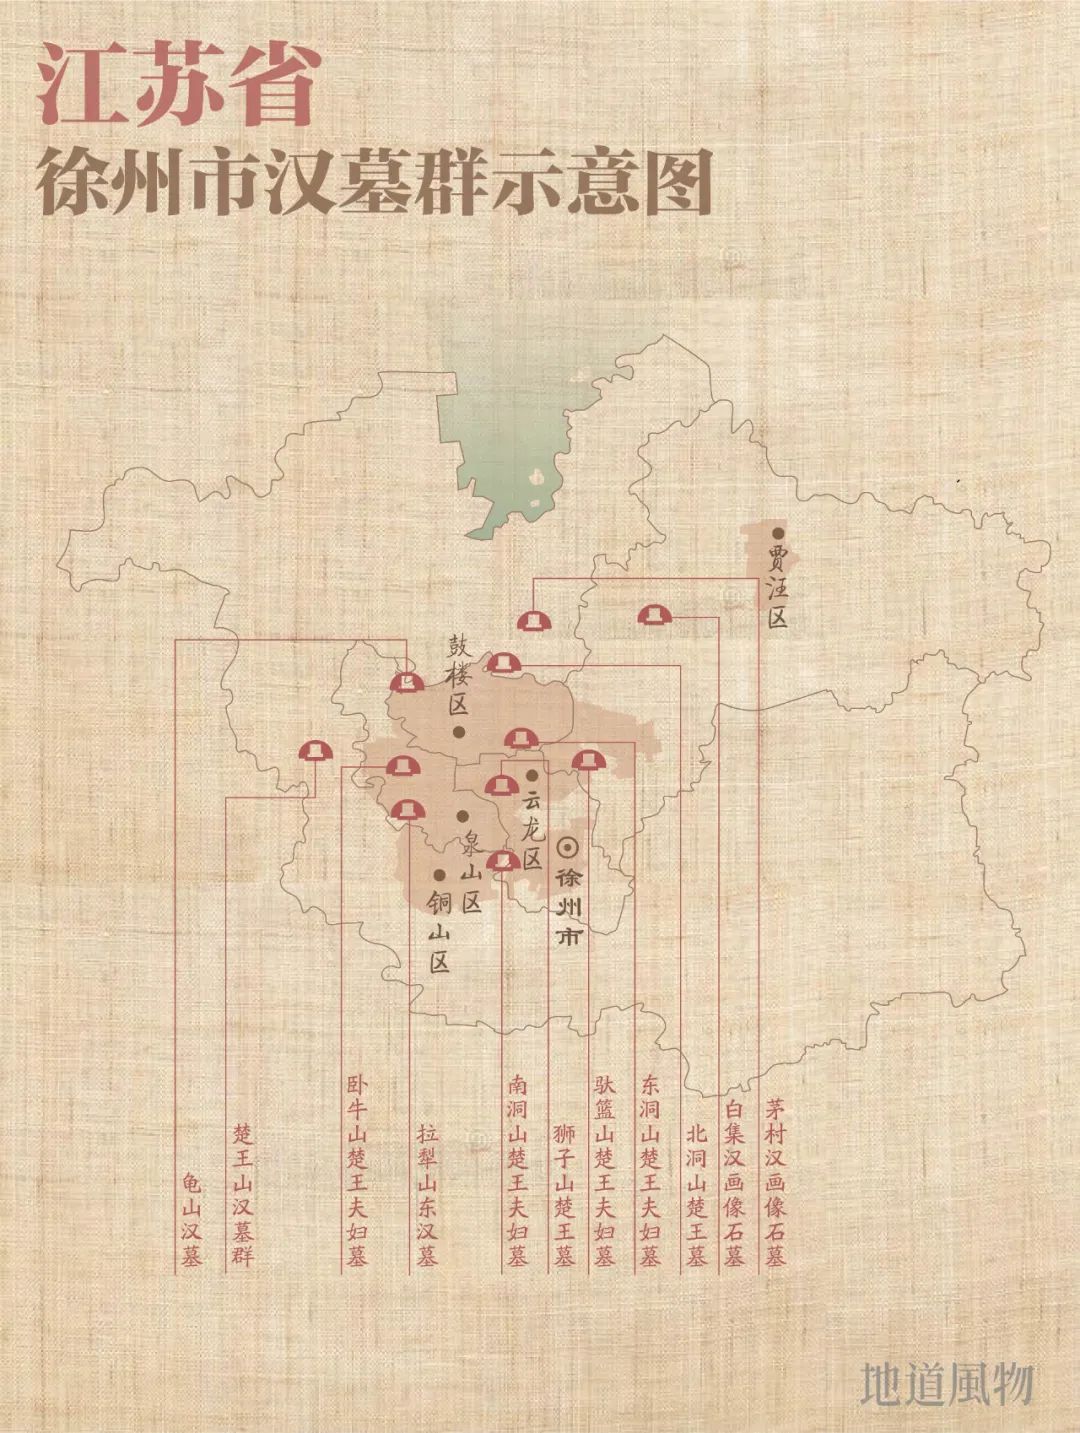 江苏省
徐州市汉墓群示意图
贾汪区
鼓楼区
云龙区
泉山区
铜山区
徐州市
龟山汉墓
楚王山汉墓群
卧牛山楚王夫妇墓
拉犁山东汉墓
南洞山楚王夫妇墓
狮子山楚王墓
驮篮山楚王夫妇墓
东洞山楚王夫妇墓
北洞山楚王墓
白集汉画像石墓
茅村汉画像石墓
地道風物